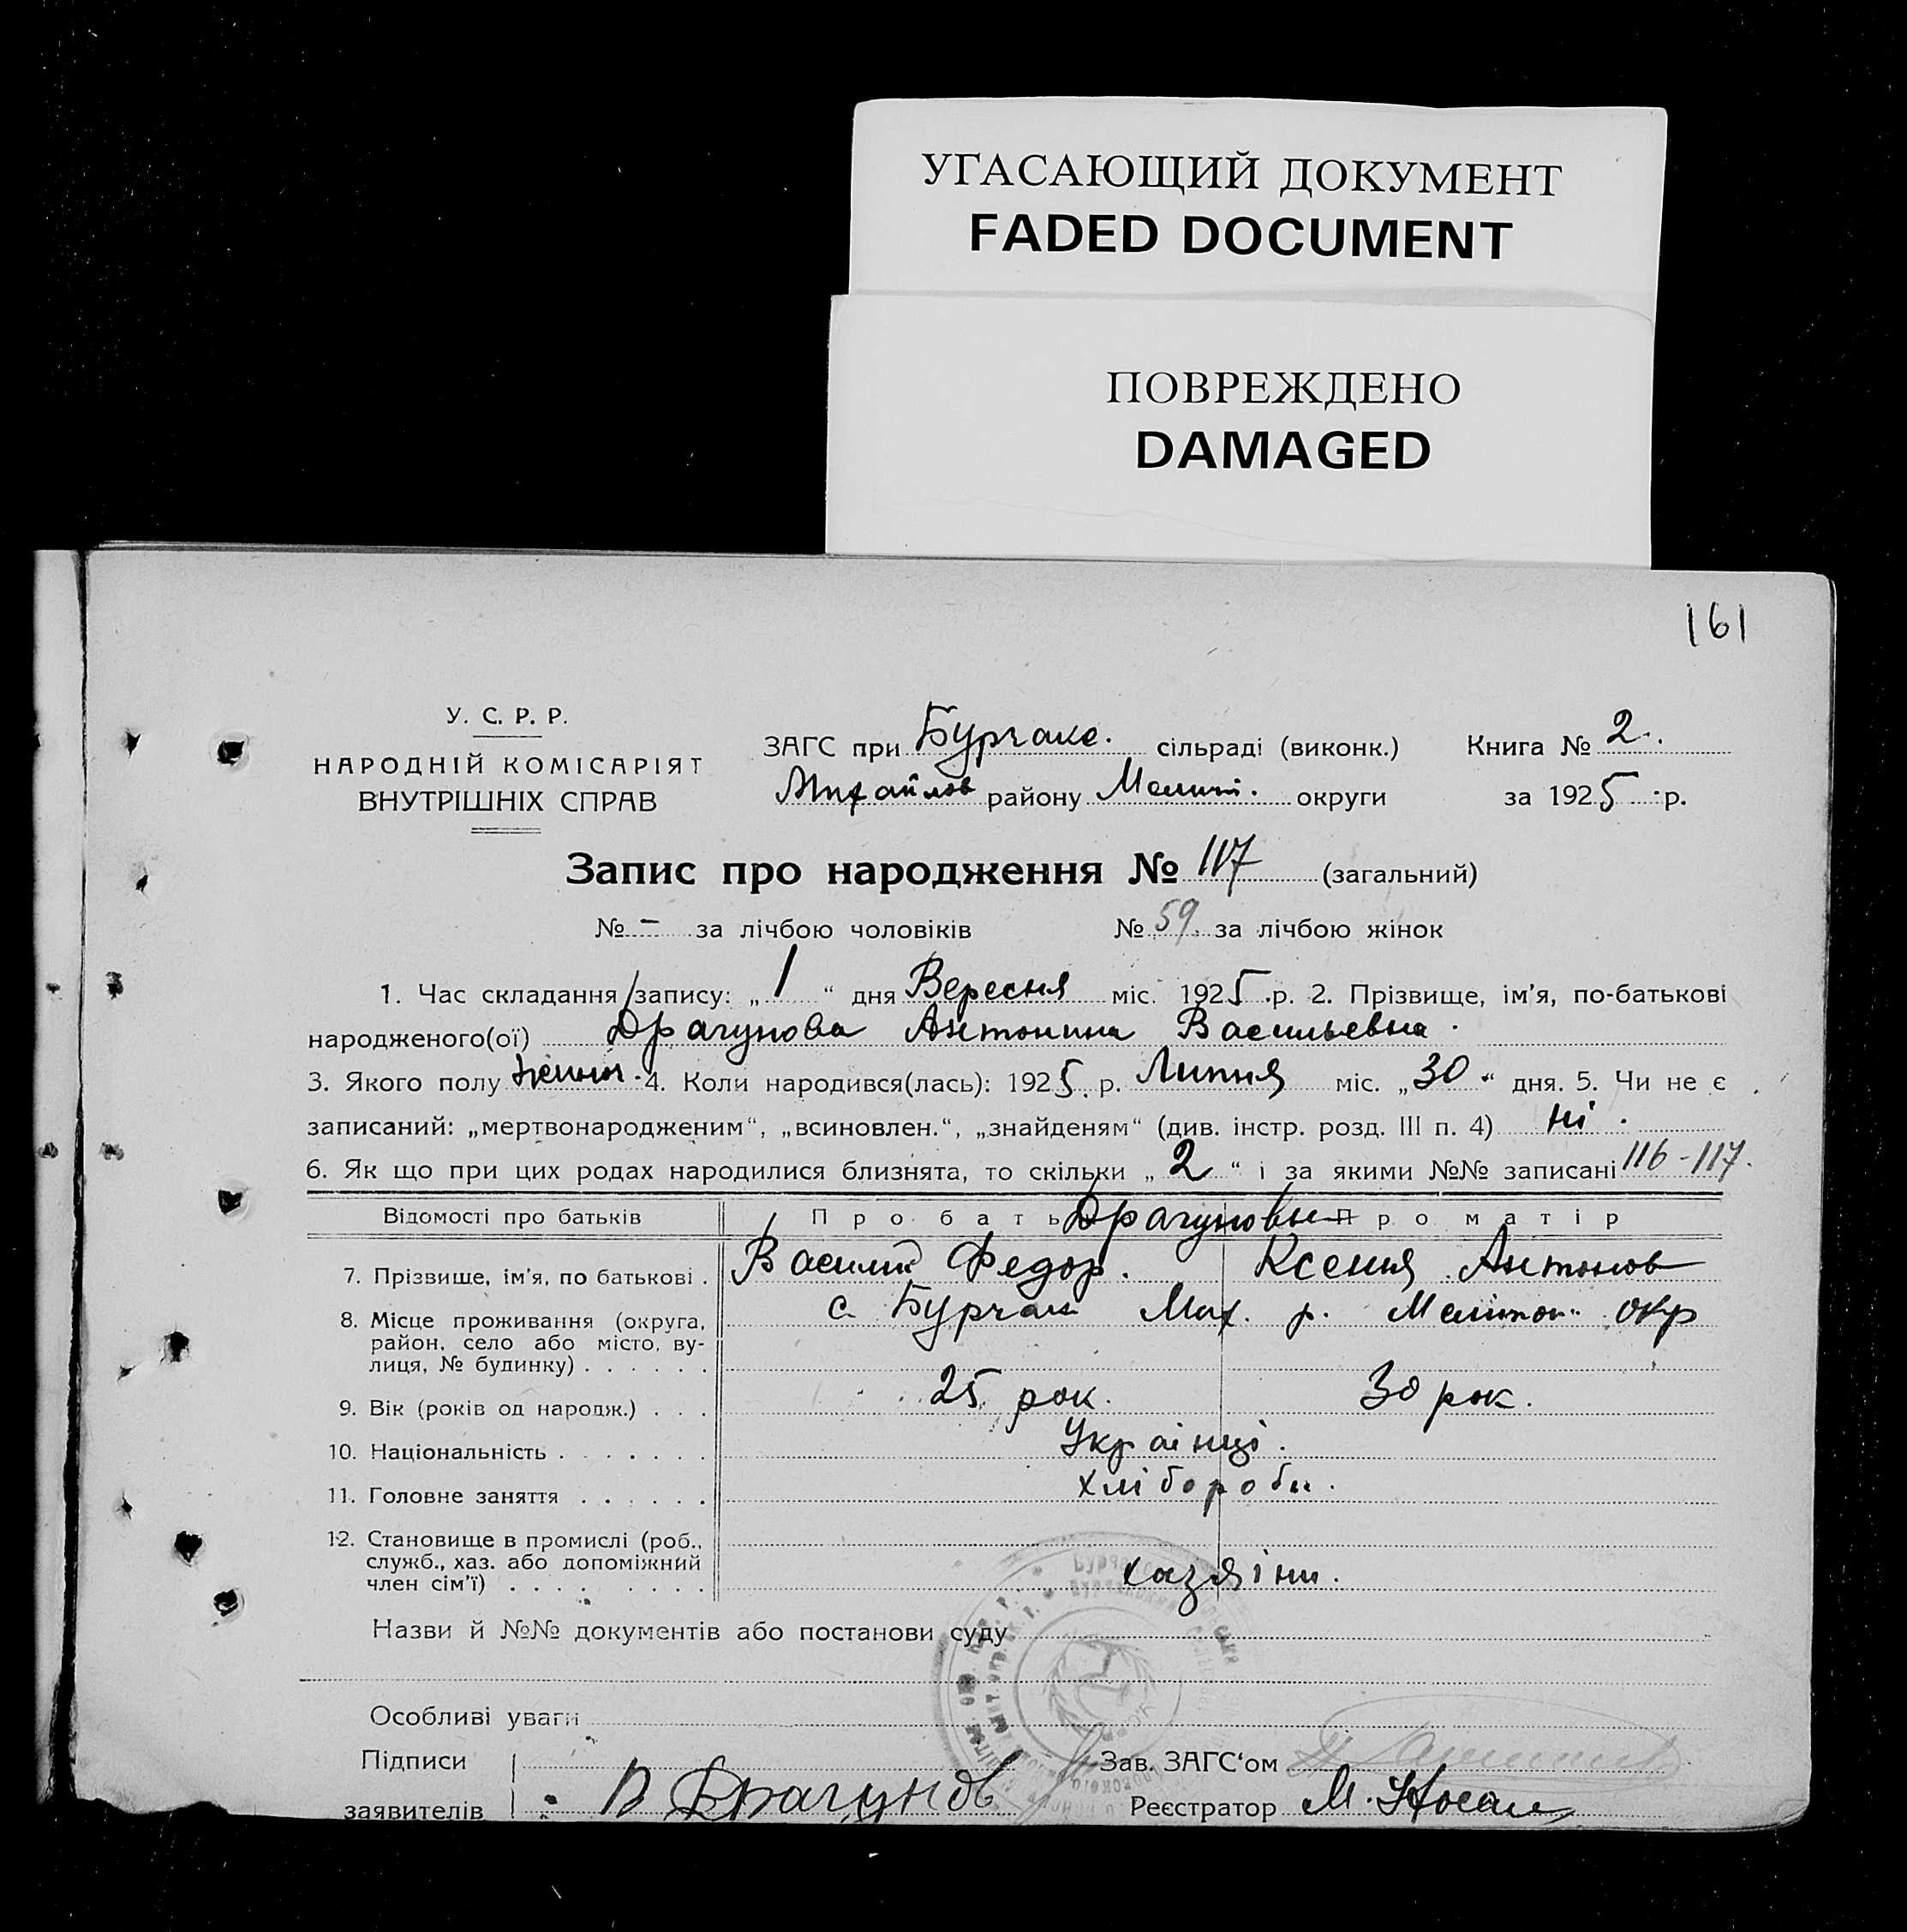 УГАСАЮЩИЙ ДОКУМЕНТ
FADED DOCUMENT
ПОВРЕЖДЕНО
DAMAGED
161
У. С. Р. Р.
НАРОДНІЙ КОМІСАРІЯТ
ВНУТРІШНІХ СПРАВ
ЗАГС при Бурчакс. сільраді (виконк.) Книга № 2.
Михайлов району Меліт. округи за 1925 р.
Запис про народження № 117 (загальний)
№ - за лічбою чоловіків № 59. за лічбою жінок
1. Час складання запису: „ 1 “ дня Вересня міс. 1925 р. 2. Прізвище, ім’я, по-батькові
народженого(ої) Драгунова Антонина Васильевна.
3. Якого полу жіноч. 4. Коли народився(лась): 1925 р. Липня міс. „ 30 “ дня. 5. Чи не є
записаний: „мертвонародженим“, „всиновлен.“, „знайденям“ (див. інстр. розд. III п. 4) ні.
6. Як що при цих родах народилися близнята, то скільки „ 2 “ і за якими №№ записані 116-117.
Відомості про батьків Про бать Драгуновы Про матір
7. Прізвише, ім’я, по батькові . Василий Федор. Ксения Антонов
8. Місце проживання (округа, с. Бурчак Мих. р. Мелітоп. окр
район, село або місто, ву-
лиця, № будинку) . . . . . .
9. Вік (років од народж.) . . . 25 рок. 30 рок.
10. Національність . . . . . . . Українці.
11. Головне заняття . . . . . . хлібороби.
12. Становище в промислі (роб.,
служб., хаз. або допоміжний
член сім’ї) . . . . . . . . хазяіни.
Назви й №№ документів або постанови суду
Особливі уваги
Підписи Зав. ЗАГС‘ом
заявителів В Драгунов Реєстратор М. Носал